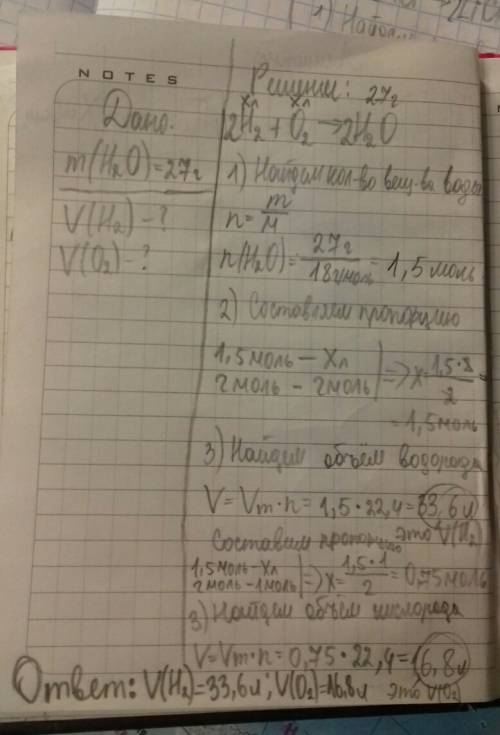 1) Найдём
NOTES
Дано.
m(H₂O)=27г
V(H₂)-?
V(O₂)-?
Решение: 27г
xл xл
2H₂+O₂→2H₂O
1) Найдём кол-во вещ-ва воды
n=m/M
n(H₂O)=27г/18г/моль=1,5моль
2) Составляем пропорцию
1,5моль-xл
2моль-2моль |=>x=1,5·2/2=
=1,5моль
3) Найдём объём водорода
V=Vm·n=1,5·22,4=33,6л
это V(H₂)
Составим пропорцию
1,5моль-xл
2моль-1моль |=>x=1,5·1/2=0,75моль
3) Найдём объём кислорода
V=Vm·n=0,75·22,4=16,8л
это V(O₂)
Ответ: V(H₂)=33,6л; V(O₂)=16,8л